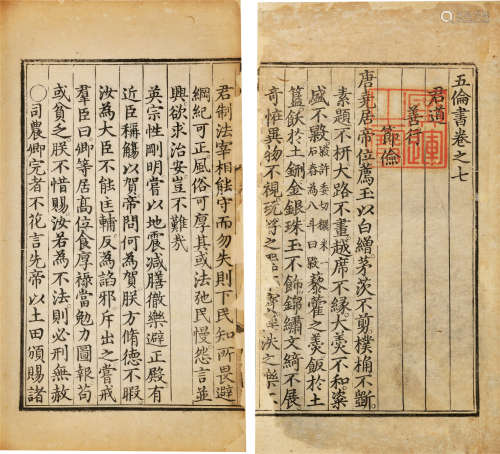 五倫書卷之七
君道
善行
節儉
唐堯居帝位薦玉以白繒茅茨不剪樸桷不斲
素題不枅大路不畫越席不緣大羹不和粢
盛不毇毇許委切糲米一石舂為八斗曰毇藜藿之羹飯於土
簋飲於土鉶金銀珠玉不飾錦繡文綺不展
奇怪異物不視玩好之器不寶淫泆之樂不
君制法宰相能守而勿失則下民知所畏避
綱紀可正風俗可厚其或法弛民慢怨言並
興欲求治安豈不難哉
英宗性剛明嘗以地震減膳徹樂避正殿有
近臣稱觴以賀帝問何為賀朕方脩德不暇
汝為大臣不能匡輔反為諂邪斥出之嘗戒
羣臣曰卿等居高位食厚祿當勉力圖報苟
或貧乏朕不惜賜汝若為不法則必刑無赦
○司農卿完者不花言先帝以土田頒賜諸